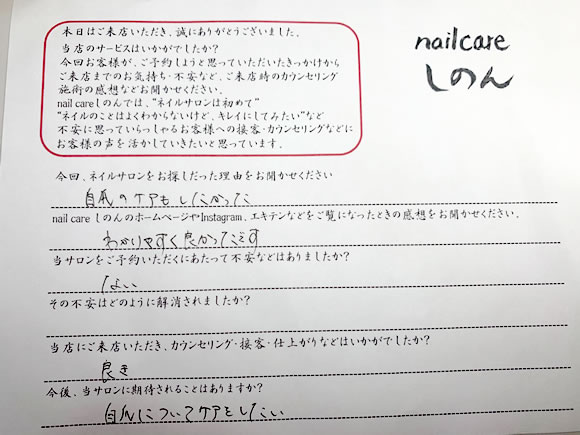 本日はご来店いただき、誠にありがとうございました。
当店のサービスはいかがでしたか?
今回お客様が、ご予約しようと思っていただいたきっかけから
ご来店までのお気持ち・不安など、ご来店時のカウンセリング
施術の感想などお聞かせください。
nail careしのんでは、"ネイルサロンは初めて"
"ネイルのことはよくわからないけど、キレイにしてみたい"など
不安に思っていらっしゃるお客様への接客・カウンセリングなどに
お客様の声を活かしていきたいと思っています。
nailcare
しのん
今回、ネイルサロンをお探しだった理由をお聞かせください
自爪のケアもしたかった
nail care しのんのホームページやInstagram、エキテンなどをご覧になったときの感想をお聞かせください。
わかりやすく良かったです
当サロンをご予約いただくにあたって不安などはありましたか?
ない
その不安はどのように解消されましたか?
当店にご来店いただき、カウンセリング・接客・仕上がりなどはいかがでしたか?
良き
今後、当サロンに期待されることはありますか?
自爪についてケアをしたい